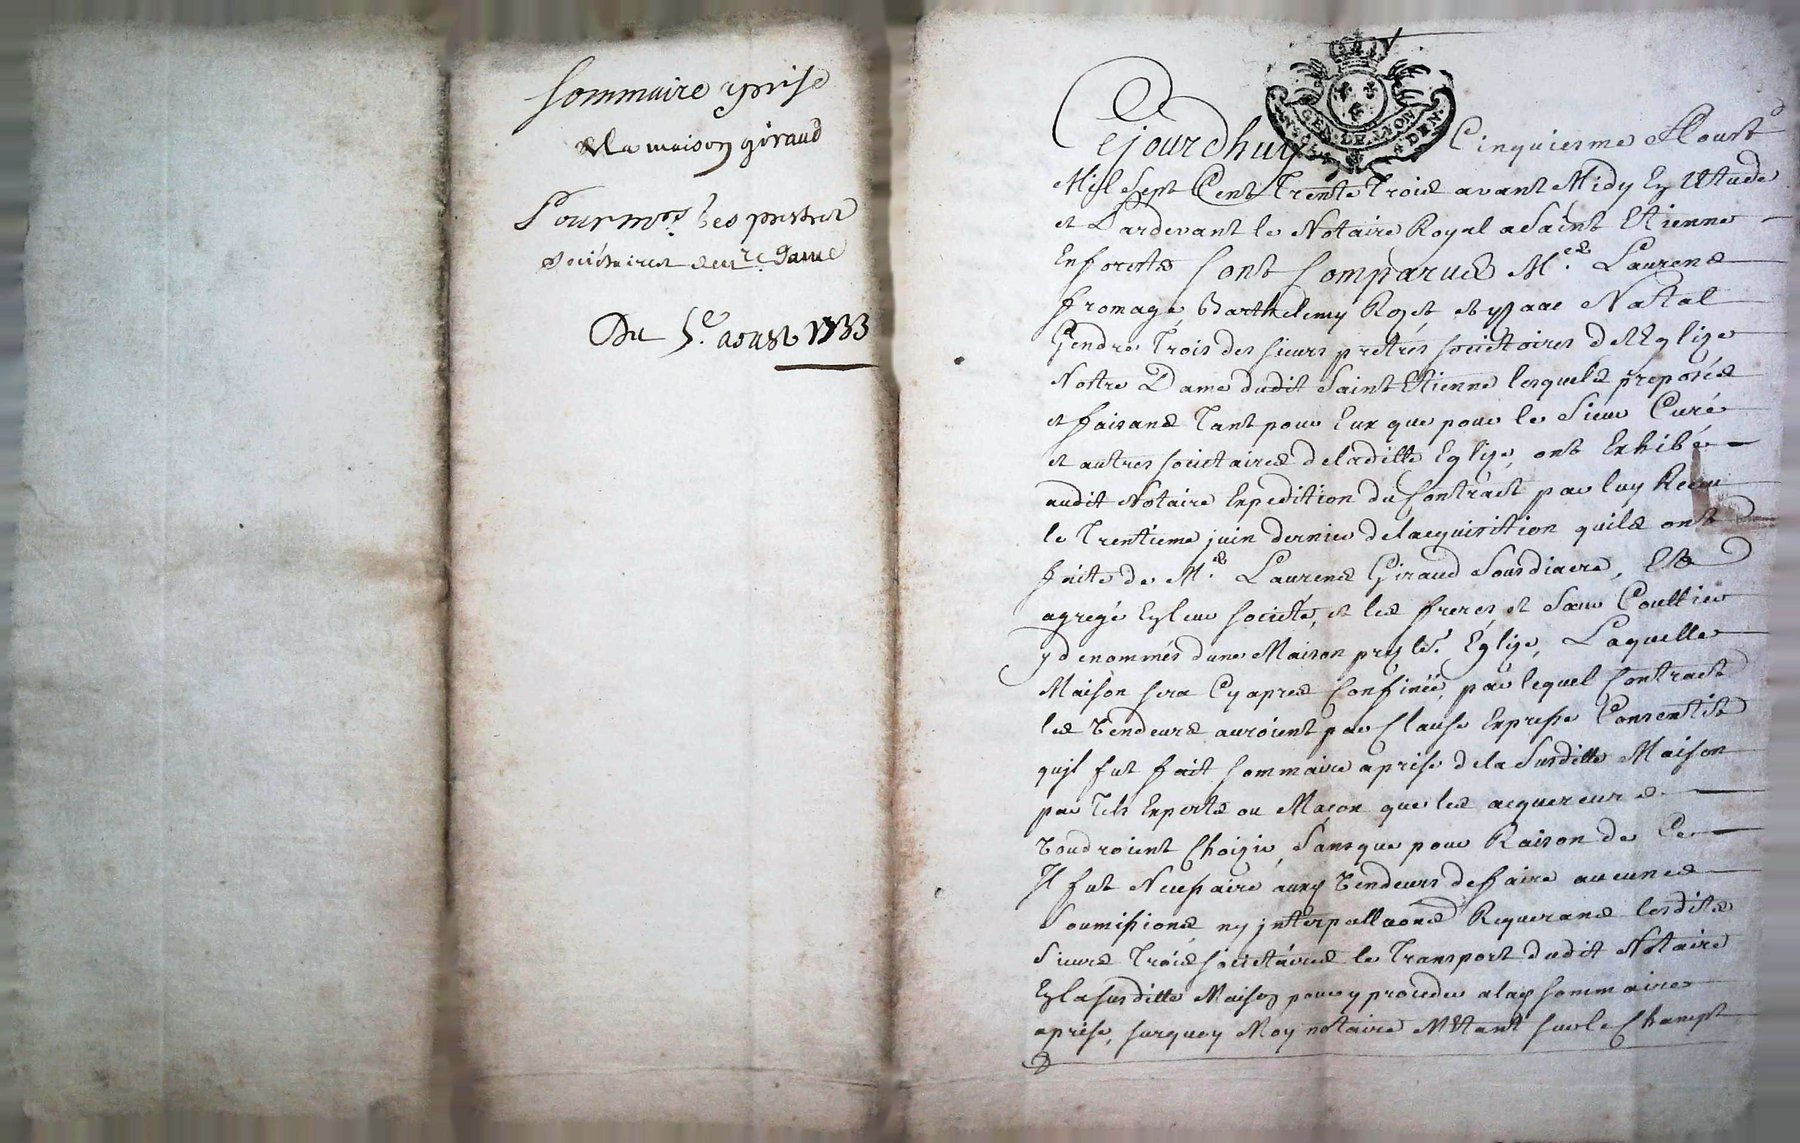 Sommaire aprise
de la maison giraud
Pour mrs les prestres
societaires de nre. Dame
Du 5e. aoust 1733
GEN. DE LYON
Cejourdhuy Cinquiesme Aoust
Mil sept Cent Trente Trois avant Midy En Etude
et Pardevant le Notaire Royal a Saint Etienne
En forests sont Comparus Mes. Laurens
fromage, Barthelemy Royet et ysaac Natal
Gendre Trois des sieurs prêtres societaires de l'Eglize
Notre Dame dudit Saint Etienne lesquels proposés
et faisans Tant pour Eux que pour le Sieur Curé
et autres societaires de la ditte Eglize, ont Exhibé
audit Notaire Expedition du Contract par luy Receu
le Trentieme juin dernier de lacquisition quils ont
faite de Me. Laurens Giraud Sousdiacre, Et
agregé En leur societé, et les freres et Sœur Coultier
y denommés dune Maison prez lad. Eglize, Laquelle
Maison sera Cy apres Confinée, par lequel Contract
les Vendeurs auroient par Clause Expresse Consentit
quil fut fait sommaire aprise de la Susditte Maison
par Tels Experts ou Maçon que les acquereurs
Voudroient Choizir, Sans que pour Raison de Ce
Il fut Necessaire auxd Vendeurs de faire aucunes
Soumissions ny jnterpellations Requerans lesdits
Sieurs Trois societaires le Transport dudit Notaire
En la susditte Maison pour y proceder a lad sommaire
aprise, surquoy Moy notaire M'Etant sur le Champt